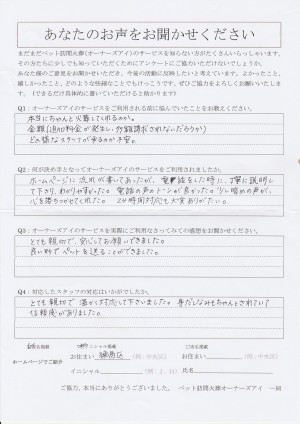 あなたのお声をお聞かせください
まだまだペット訪問火葬(オーナーズアイ)のサービスを知らない方がたくさんいらっしゃいます。
その方たちに少しでも知っていただくためにアンケートにご協力いただけないでしょうか。
あなた様のご意見をお聞かせいただき、今後の活動に反映したいと考えています。よかったこと、
嬉しかったこと、どのような些細なことでもけっこうです。ぜひご協力をよろしくお願いいたします。
(できるだけ具体的に書いていただけると助かります)
Q1:オーナーズアイのサービスをご利用される前に悩んでいたことをお教えください。
本当にちゃんと火葬してくれるのか。
金額(追加料金が発生し多額請求されないだろうか)
どの様なスタッフが来るのか不安。
Q2:何が決め手となってオーナーズアイのサービスをご利用されましたか。
ホームページに流れが書いてあったが、電話をした時に、丁寧に説明し
て下さり、わかりやすかった。電話の声のトーンが良かった。少し暗めの声が、
心を落ちつかせてくれた。24時間対応も大変ありがたい。
Q3:オーナーズアイのサービスを実際にご利用なさってみての感想をお聞かせください。
とても親切で、安心してお願いできました。
良い形でペットを送ることができました。
Q4:対応したスタッフの対応はいかがでしたか。
とても親切で温かく対応して下さいました。身だしなみもちゃんとされていて
信頼度がありました。
イニシャル掲載
ホームページでご紹介
お住まい 練馬区 (例:中央区)
お住まい (例:中央区)
イニシャル (例:J.H)
氏名
ご協力、本当にありがとうございました。 ペット訪問火葬オーナーズアイ 一同